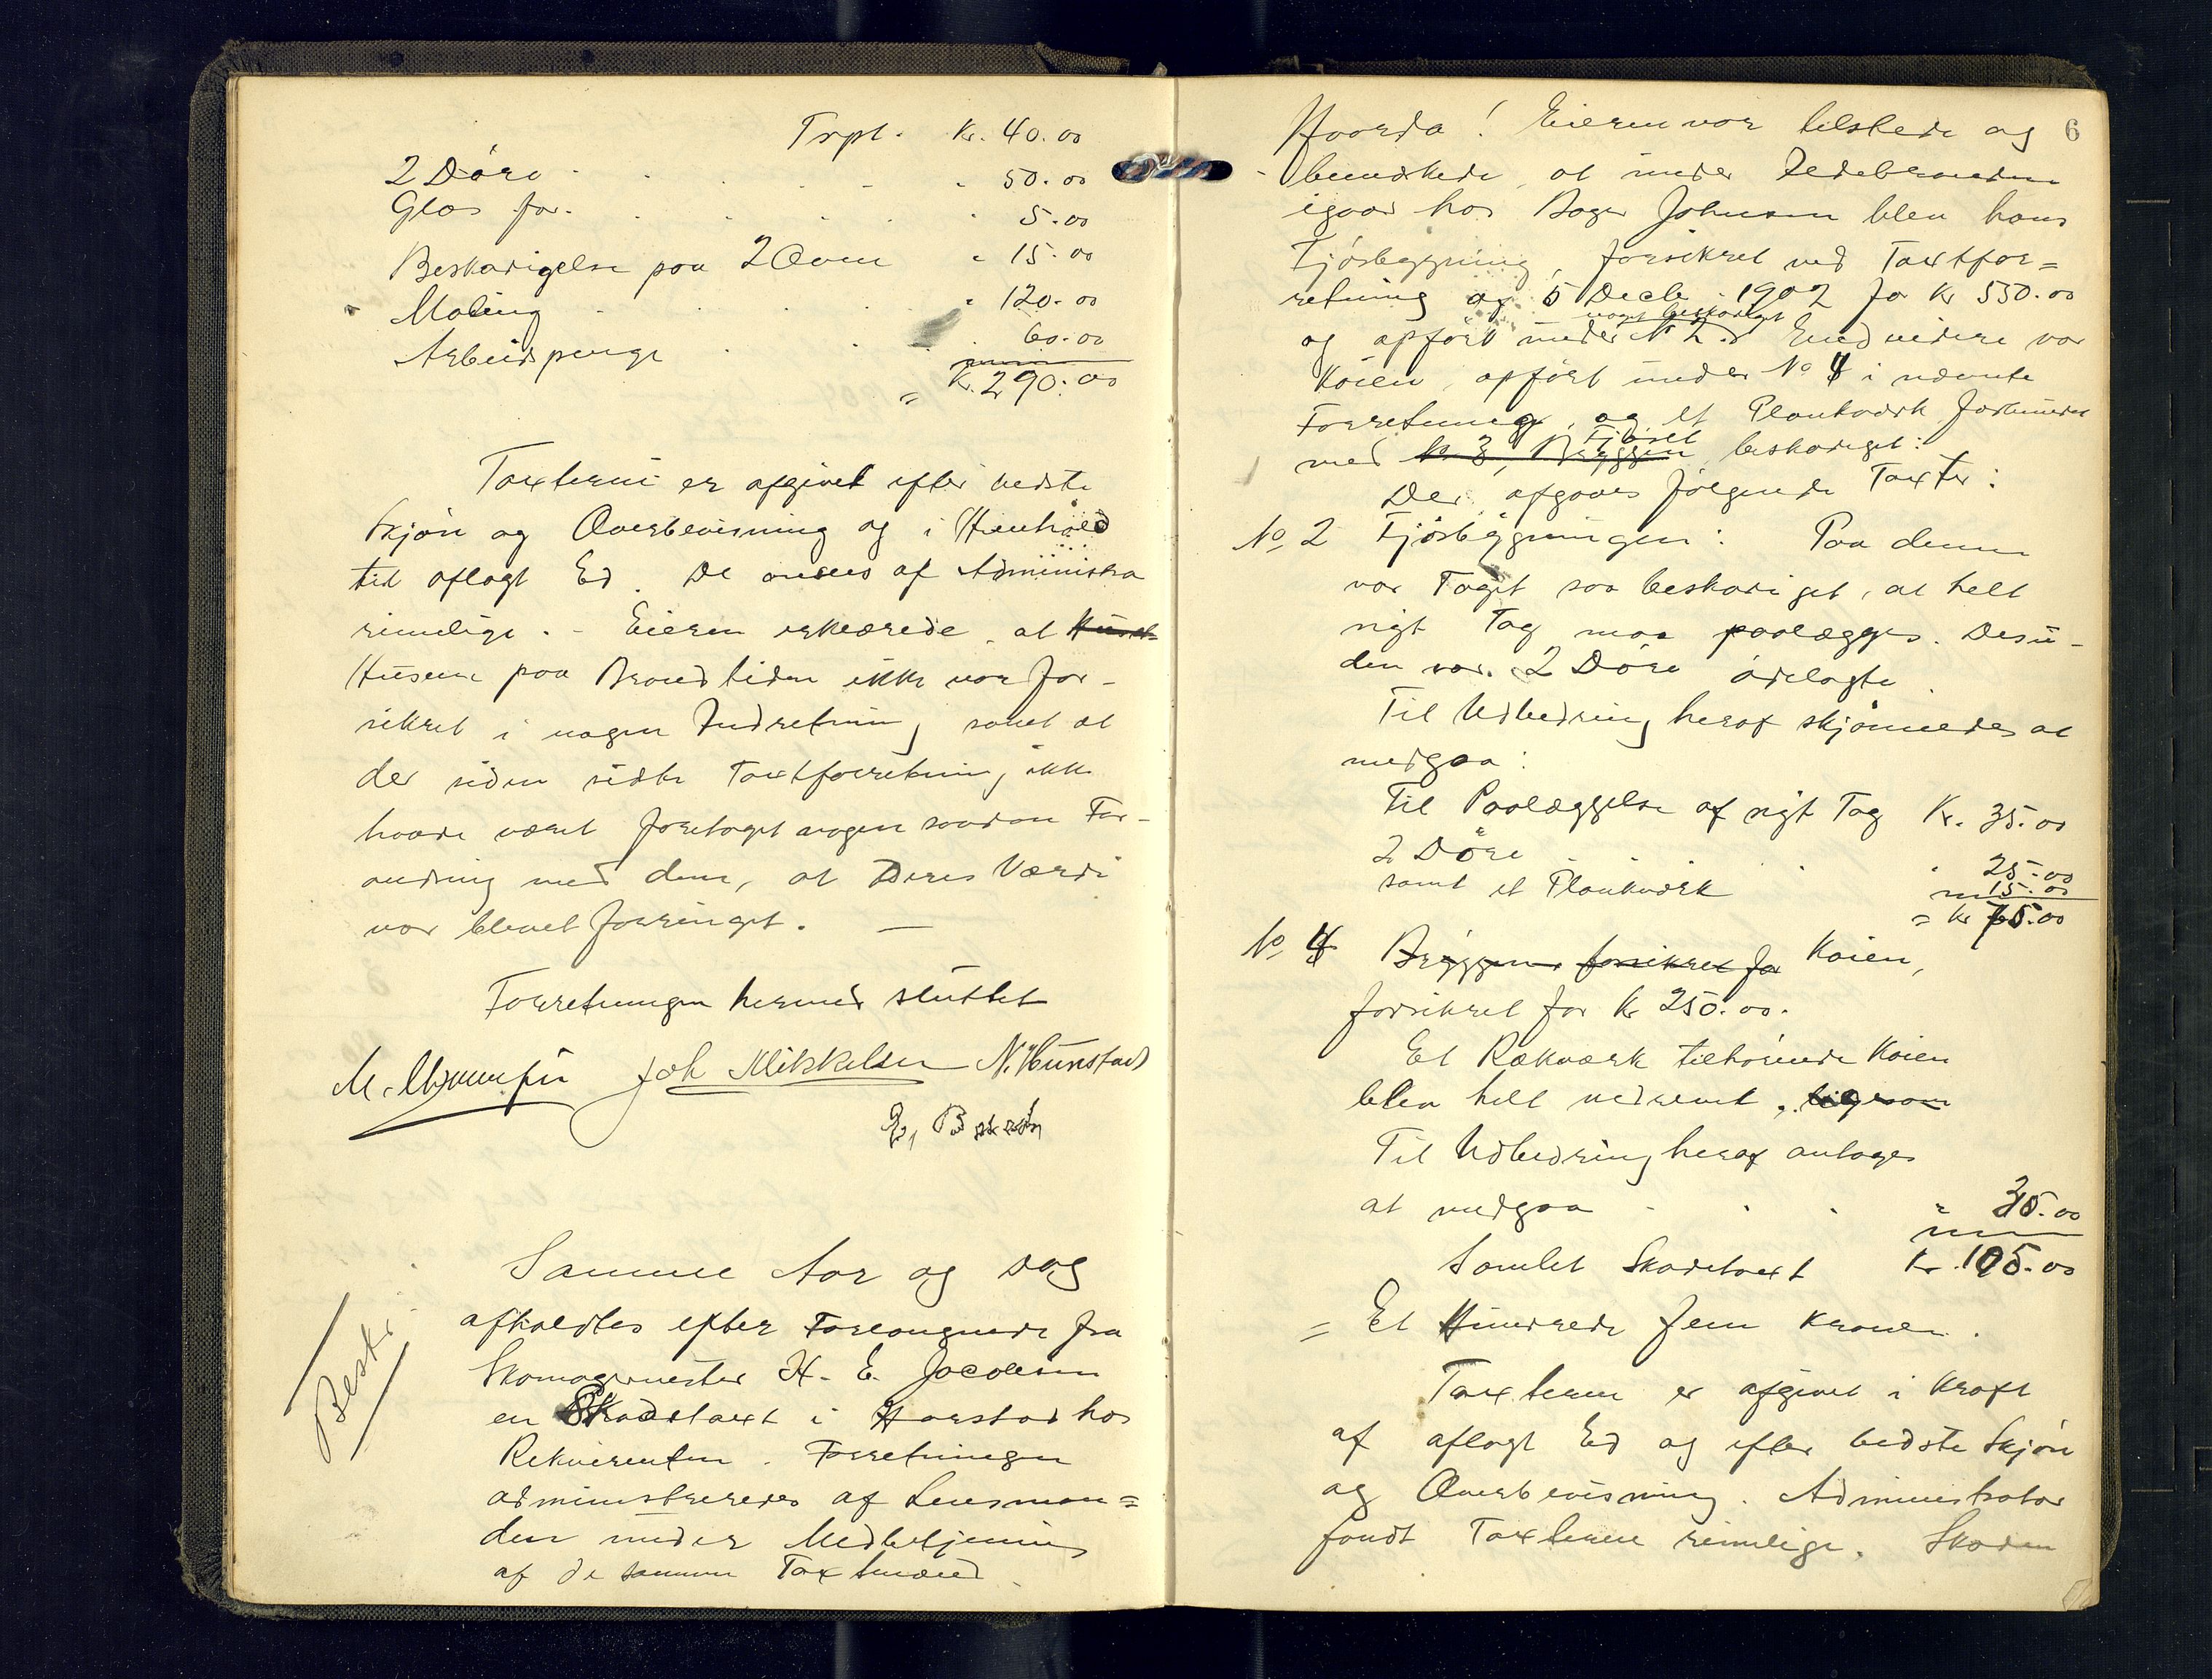 Trpt. Kr. 40.00
2 Döre " 50.00
Glas for " 5.00
Beskadigelse paa 2 Ovne " 15.00
Maling " 120.00
Arbeidspenge " 60.00
= Kr. 290.00
Taxterne er afgivet efter bedste
Skjøn og Overbevisning og i Henhold
til aflagt Ed. De ansees af Administra
rimelige. - Eieren erklærede, at
Husene paa Brandtiden ikke var for-
sikret i nogen Indretning samt at
der siden sidste Taxtforretning ikke
havde været foretaget nogen saadan For-
andring med dem, at Deres Værdi
var blevet forringet. —
Forretningen hermed sluttet
Joh Mikkelsen N. Hunstad
Samme Aar og Dag
afholdtes efter Forlangende fra
Skomagermester H. E. Jacobsen
en Skadetaxt i Harstad hos
Rekvirenten. Forretningen
administreredes af Lensman=
den under Medbetjening
af de samme Taxtmænd.
Besk.
6
Hvorda! Eieren var tilstede og
bemærkede, at under Ildebranden
igaar hos Bager Johnsen blev hans
Fjøsbygning, forsikret ved Taxtfor=
retning af 5 Decbr. 1902 for Kr 550.00
noget beskadiget
og opført under No 2. Endvidere var
Køien, opført under No 4 i nævnte
Forretning, og et Plankværk forbundet
Fjøset
med No 3, Bryggen beskadiget:
Der afgaves følgende Taxter:
No. 2 Fjøsbygningen: Paa denne
var Taget saa beskadiget, at helt
nyt Tag maa paalægges. Desu-
den var 2 Döre ödelagte.
Til Udbedring heraf skjønnedes at
medgaa:
Til Paalæggelse af nyt Tag Kr. 35.00
2 Döre " 25.00
samt et Plankværk " 15.00
= Kr 75.00
No. 4 Bryggen forsikret for Køien,
forsikret for Kr 250.00.
Et Rækværk tilhørende Køien
blev helt nedrevet, ligesom
Til Udbedring heraf antages
at medgaa " 30.00
Samlet Skadetaxt Kr. 105.00
= Et Hundrede fem Kroner.
Taxterne er afgivet i Kraft
af aflagt Ed og efter bedste Skjøn
og Overbevisning. Administrator
fandt Taxterne rimelige. Skaden